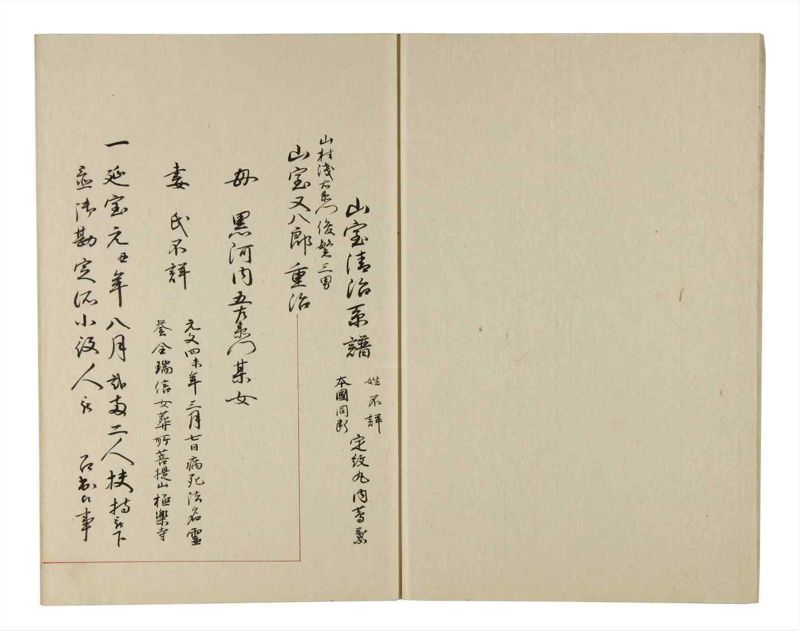 山室清治系譜
姓不詳
本國同断
定紋丸内蔦
山村浅右衛門俊繁三男
山室又八郎重治
母 黒河内五右衛門某女
妻 氏不詳
元文四未年三月七日病死法名靈
全瑞信女葬所菩提山極樂寺
一延宝元丑年八月 二人扶持被下
御勘定所小役人被 召出候事